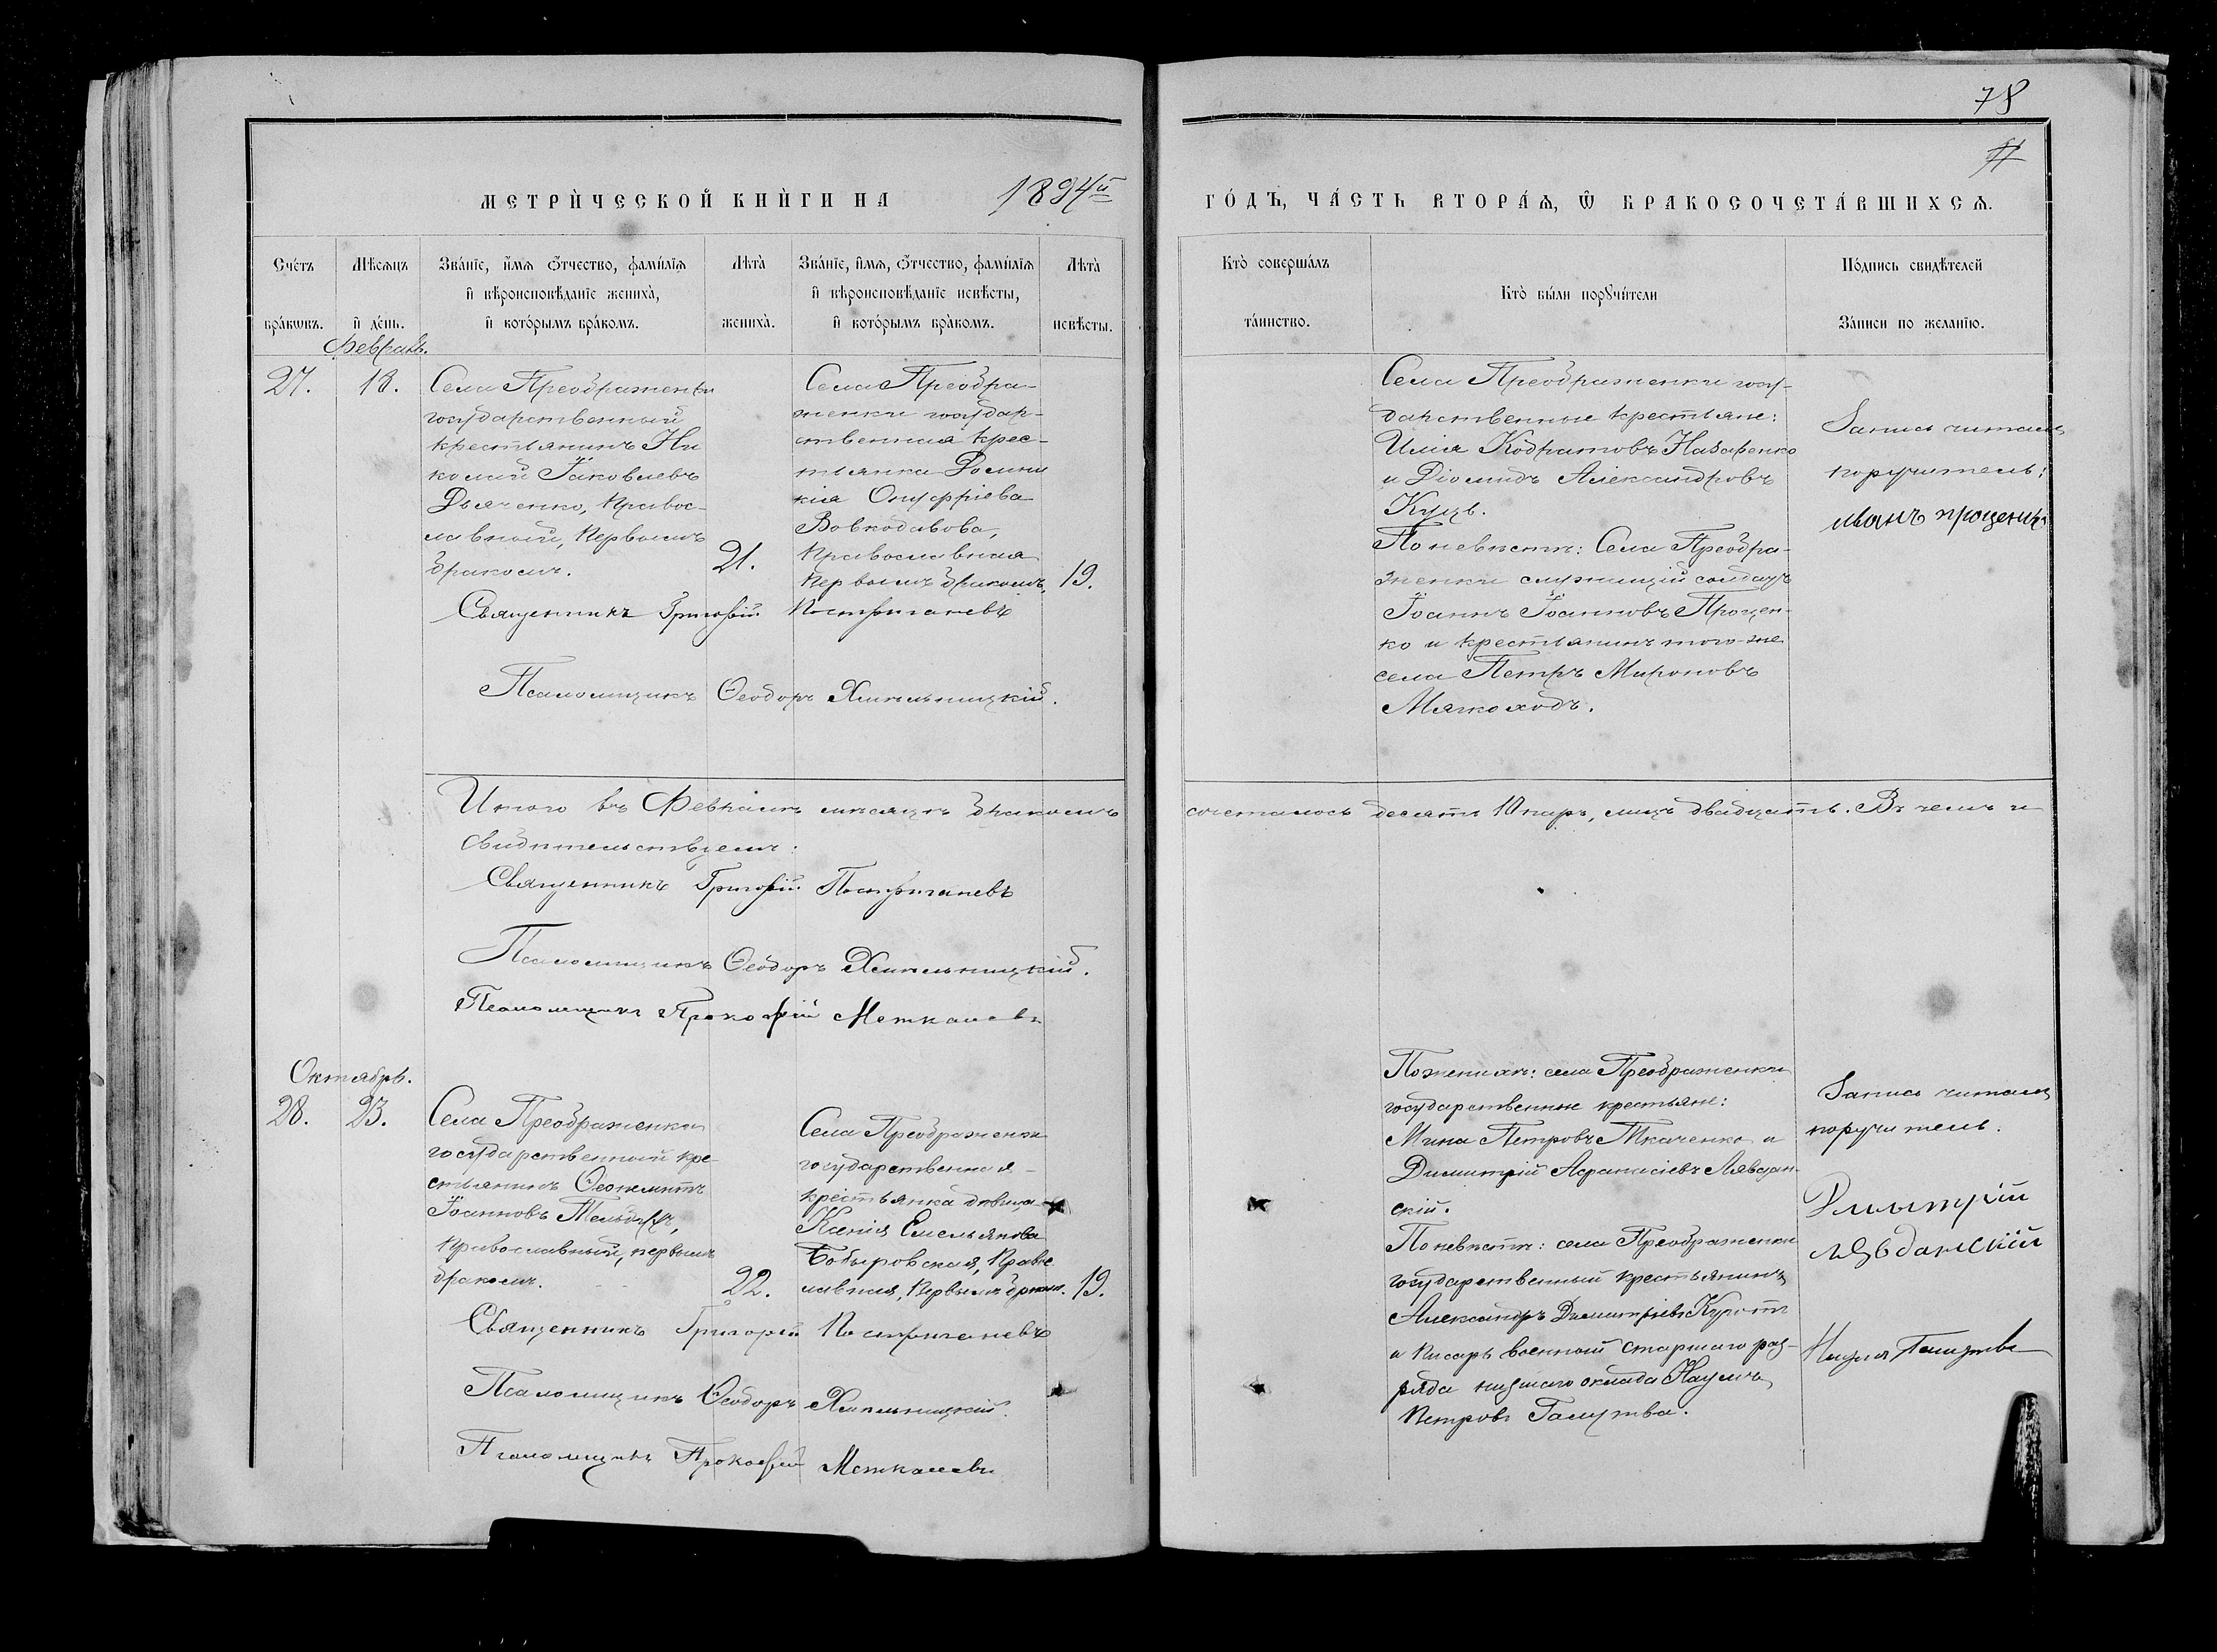 78
МЕТРИ́ЧЕСКОЙ КНИ́ГИ НА 1894й
ГО́ДЪ, ЧА́СТЬ ВТОРА́Ѧ, Ѿ БРАКОСОЧЕТА́ВШИХСѦ.
Сче́тъ бра́кѡвъ.
Мѣсѧцъ и де́нь.
Зва́нїе, и҆́мѧ ѻ҆́тчество, фами́лїѧ
и҆ вѣроисповѣданїе жениха̀,
и҆ кото́рымъ бра́комъ.
Лѣта̀
жениха̀.
Зва́нїе, и҆́мѧ, ѻ҆́тчество, фами́лїѧ
и҆ вѣроисповѣданїе невѣсты,
и҆ кото́рымъ бра́комъ.
Лѣта̀
невѣсты.
Кто̀ соверша́лъ
та́инство.
Кто̀ бы́ли порꙋчи́тели
По́дпись свидѣтелей
За́писи по жела́нїю.
Февраль.
27.
18.
Села Преображенки
государственный
крестьянинъ Ни
колай Іаковлевъ
Дьяченко, Правос-
лавный, первымъ
бракомъ.
21.
Села Преобра-
женки государ-
ственная крес-
тьянка Домни
кія Онуфріева
Вовкодавова,
Православная
первымъ бракомъ,
19.
Священникъ Григорій Постригачевъ
Псаломщикъ Ѳеодоръ Хмельницкій.
Села Преображенки госу-
дарственные крестьяне:
Илія Кодратовъ Назаренко
и Діомидъ Александровъ
Куцъ.
По невѣстѣ: Села Преобра-
женки служащій солдатъ
Іоаннъ Іоанновъ Процен-
ко и крестьянинъ того-же
села Петръ Мироновъ
Мягкоходъ.
Запись читалъ
поручитель:
иванъ проценко
Итого въ Февралѣ мѣсяцѣ бракомъ сочеталось десять 10 паръ, лицъ двадцать. Въ чемъ и
свидѣтельствуемъ:
Священникъ Григорій Постригачевъ
Псаломщикъ Ѳеодоръ Хмельницкій.
Псаломщикъ Прокофій Меткалевъ
Октябрь.
28.
23.
Села Преображенки
государственный кре-
стьянинъ Ѳеопемптъ
Іоанновъ
Православный, первымъ
бракомъ.
22.
Села Преображенки
государственная
крестьянка дѣвица
Ксенія Емельянова
Бобыровская, Правос
лавная, первымъ браком.
19.
Священникъ Григорій Постригачевъ
Псаломщикъ Ѳеодоръ Хмельницкій.
Псаломщикъ Прокофій Меткалевъ
По женихѣ: села Преображенки
государственные крестьяне:
Мина Петровъ Ткаченко и
Димитрій Афанасіевъ Лявдан-
скій.
По невѣстѣ: села Преображенки
государственный крестьянинъ
Александръ Димитріевъ
и писарь военный старшаго раз-
ряда низшаго оклада Наумъ
Петровъ Галушва.
Запись читалъ
поручитель.
Димытрій
лявданскій